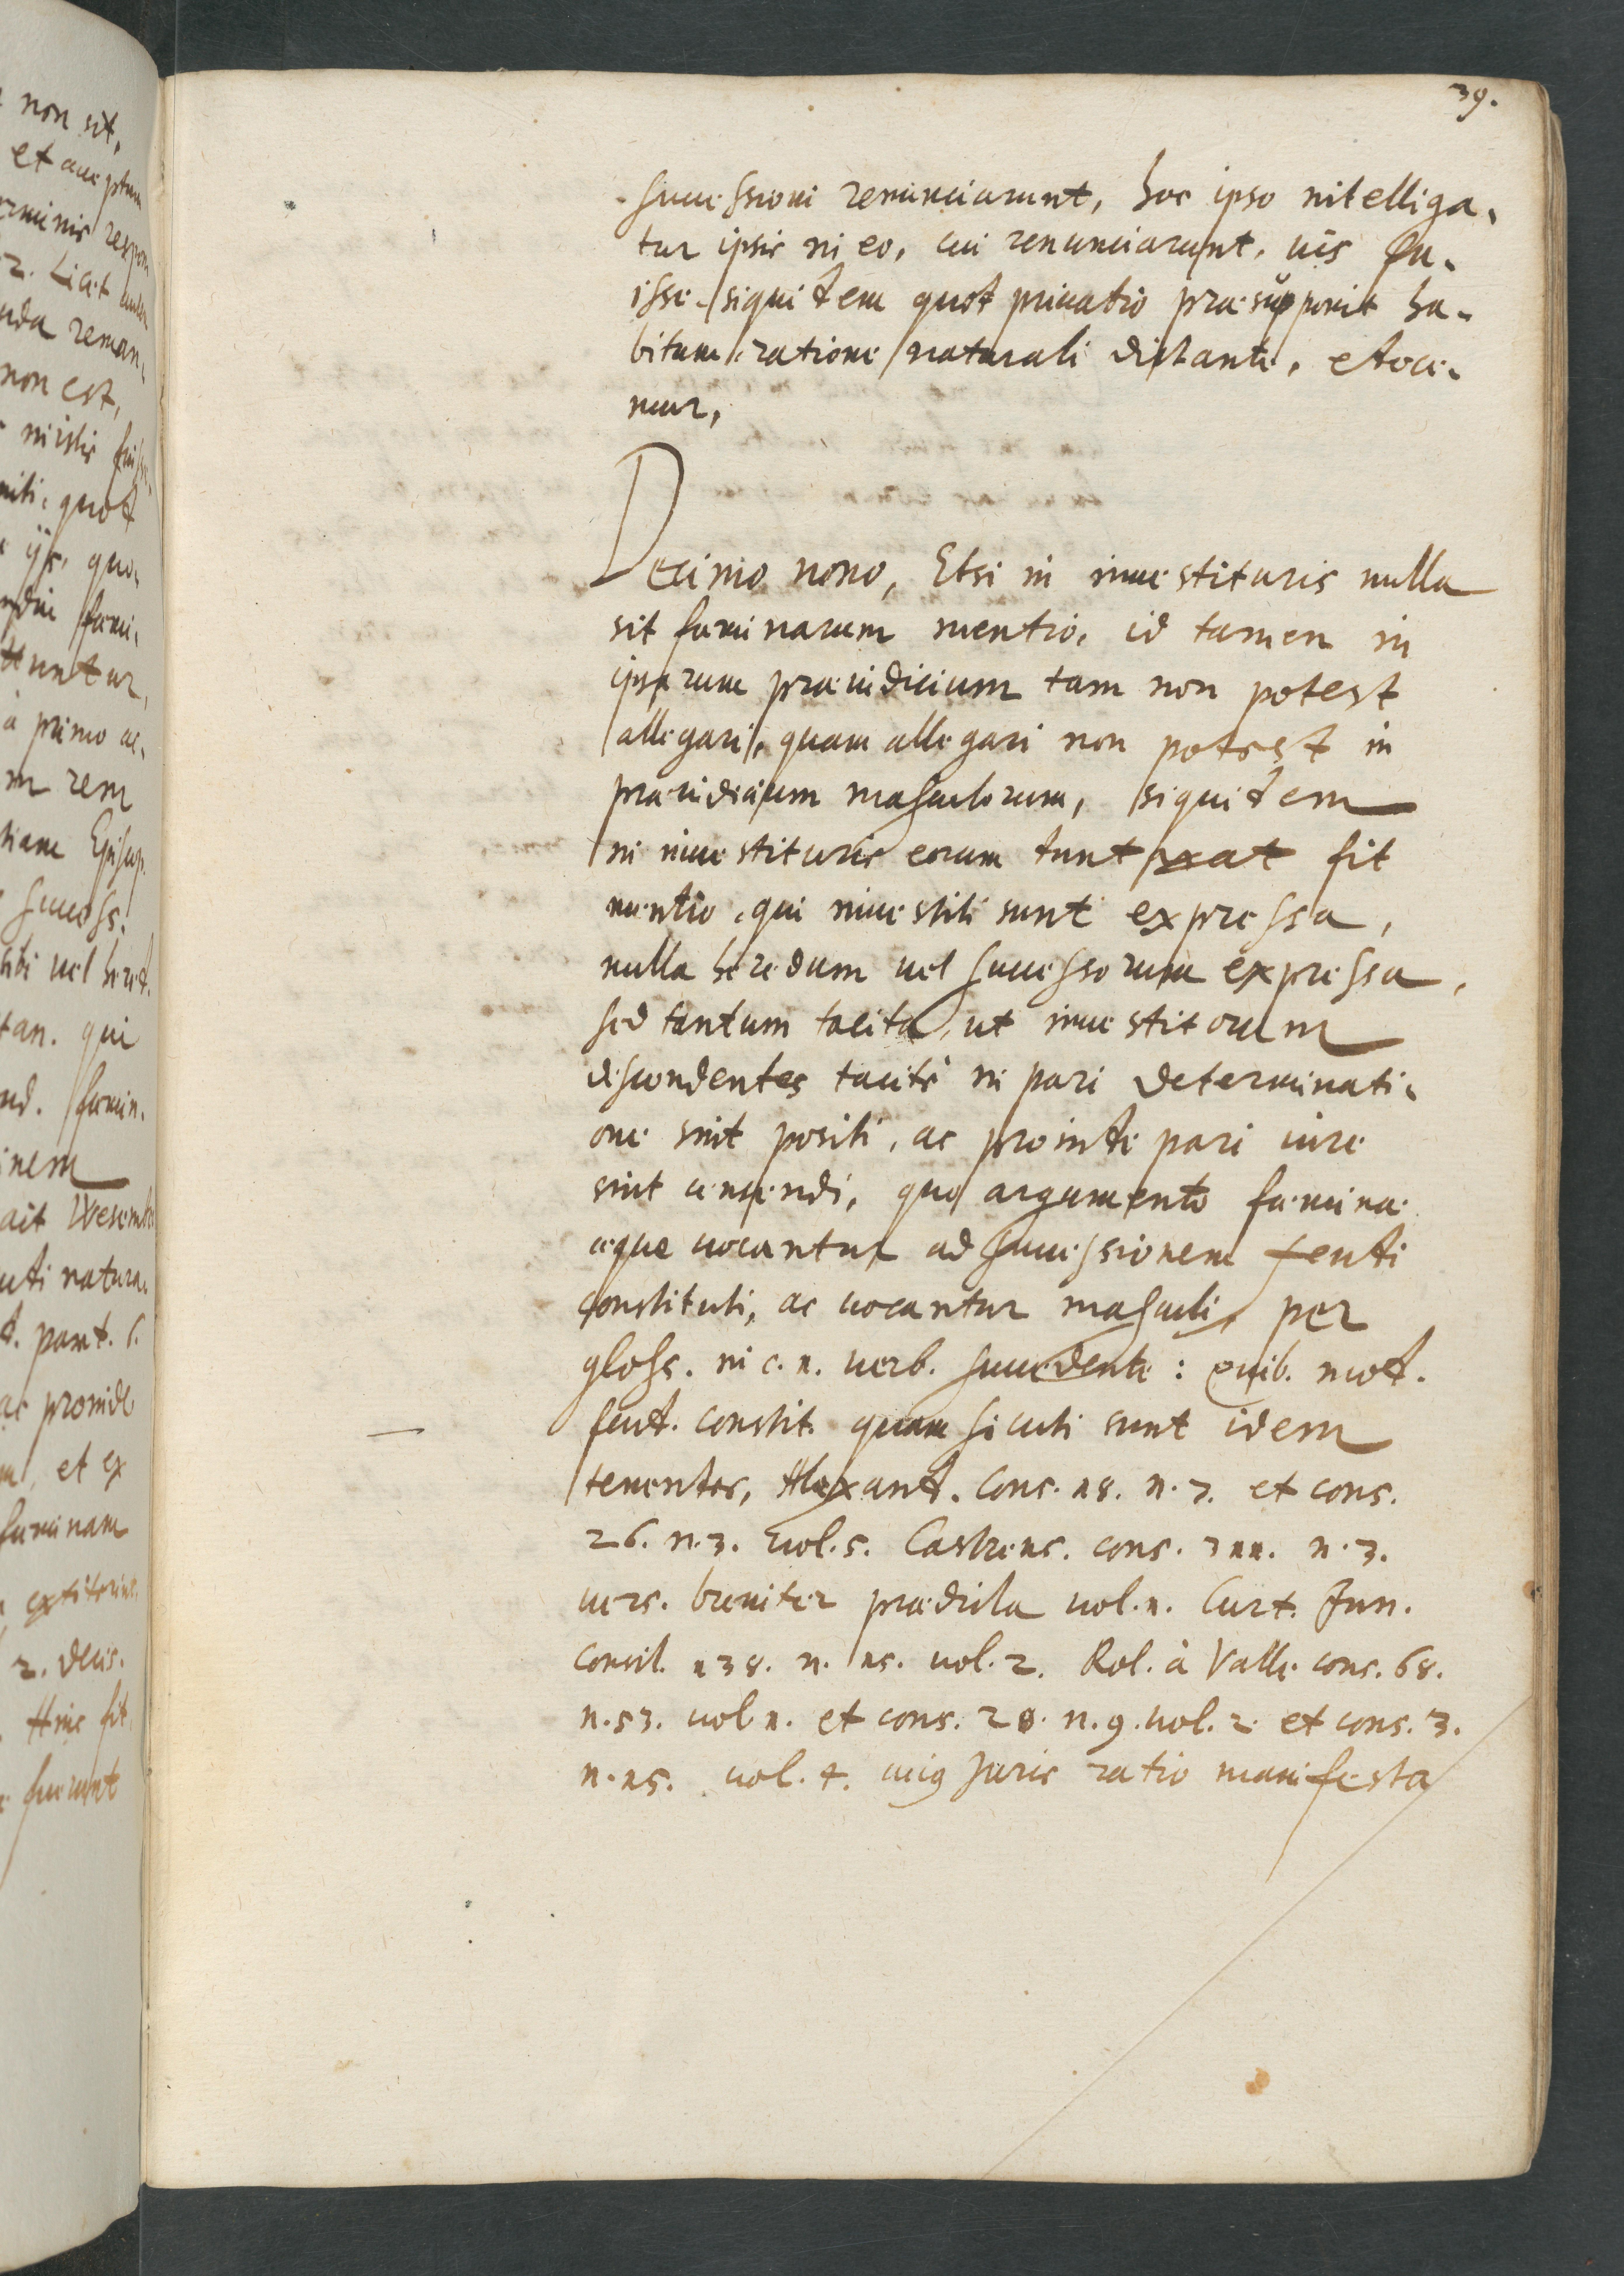 39.
successioni renunciarunt, hoc ipso intelliga-
tur ipsis in eo, cui renunciarunt, ius fu-
isse. siquidem quod priuatio præsupponit ha-
bitum, ratione naturali dictante, edoce-
mur,
Decimo nono, Etsi in inuestituris nulla
sit fæminarum mentio, id tamen in
ipsarum præiudicium tam non potest
allegari, quam allegari non potest in
præiudicium masculorum, siquidem
in inuestituris eorum duntaxat fit
mentio, qui inuestiti sunt expressa,
nulla heredum uel successorum expressa,
sed tantum tacita, ut inuestitorum
descendentes tacitè in pari determinati-
one sint positi, ac proinde pari iure
sint censendi, quo argumento fæminæ
æque uocantur ad successionem feudi
constituti, ac uocantur masculi, per
gloss. in c. 1. uerb. succedente: quib. mod.
feud. constit. quam secuti sunt idem
tenentes, Alexand. Cons. 18. n. 7. et cons.
26. n. 3. uol. 5. Castrens. cons. 311. n. 3.
uers. breuiter prædicta uol. 1. Curt. Jun.
consil. 138. n. 15. uol. 2. Rol. à Valle cons. 68.
n. 53. uol. 1. et cons. 28. n. 9. uol. 2. et cons. 3.
n. 15. uol. 4. cuius Juris ratio manifesta
non sit,
et
Licet
reman-
non est,
quod
primo ac-
rem
success.
uel
qui
fæmin.
ait Wesemb
natura
et ex
fæminam
2. decis.
Hinc fit,
fuerunt